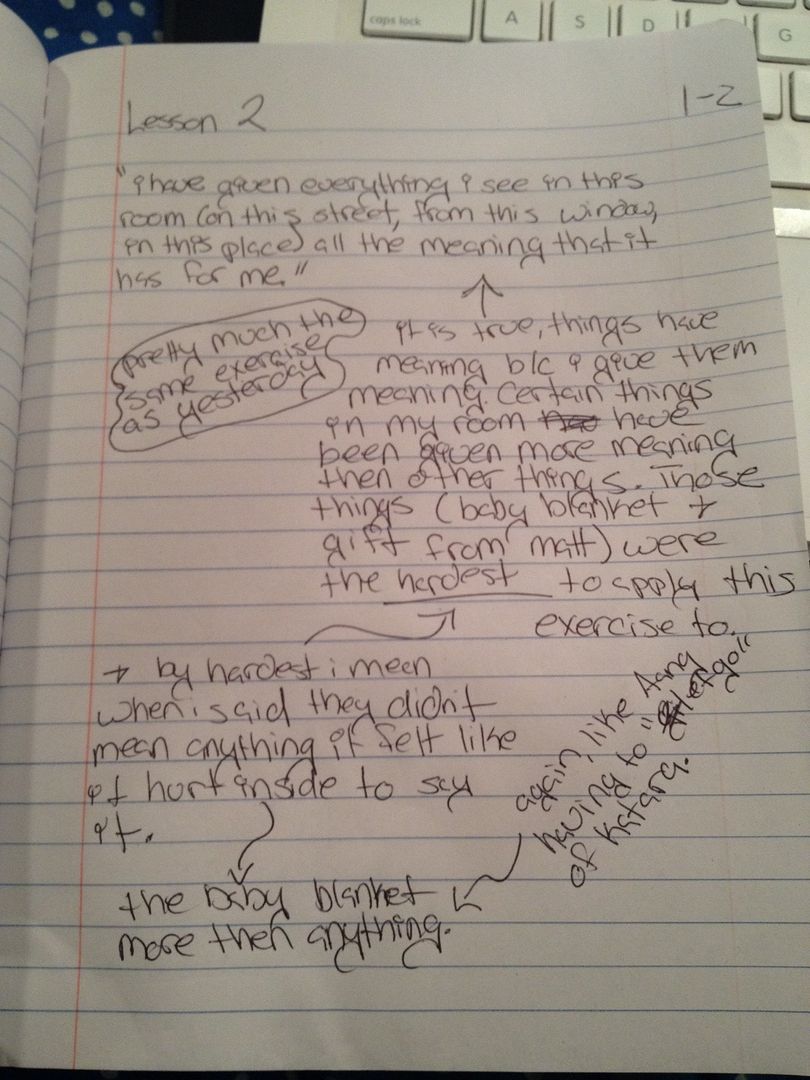 caps lock
A
S
D
G
Lesson 2
1-2
"i have given everything i see in this
room (on this street, from this window,
in this place) all the meaning that it
has for me."
pretty much the
same exercise
as yesterday
it is true, things have
meaning b/c i give them
meaning. Certain things
in my room have
been given more meaning
then other things. Those
things (baby blanket +
gift from matt) were
the hardest to apply this
exercise to.
+ by hardest i mean
when i said they didn't
mean anything it felt like
it hurt inside to say
it.
again, like Aang
having to "let go"
of Katara.
the baby blanket
more then anything.